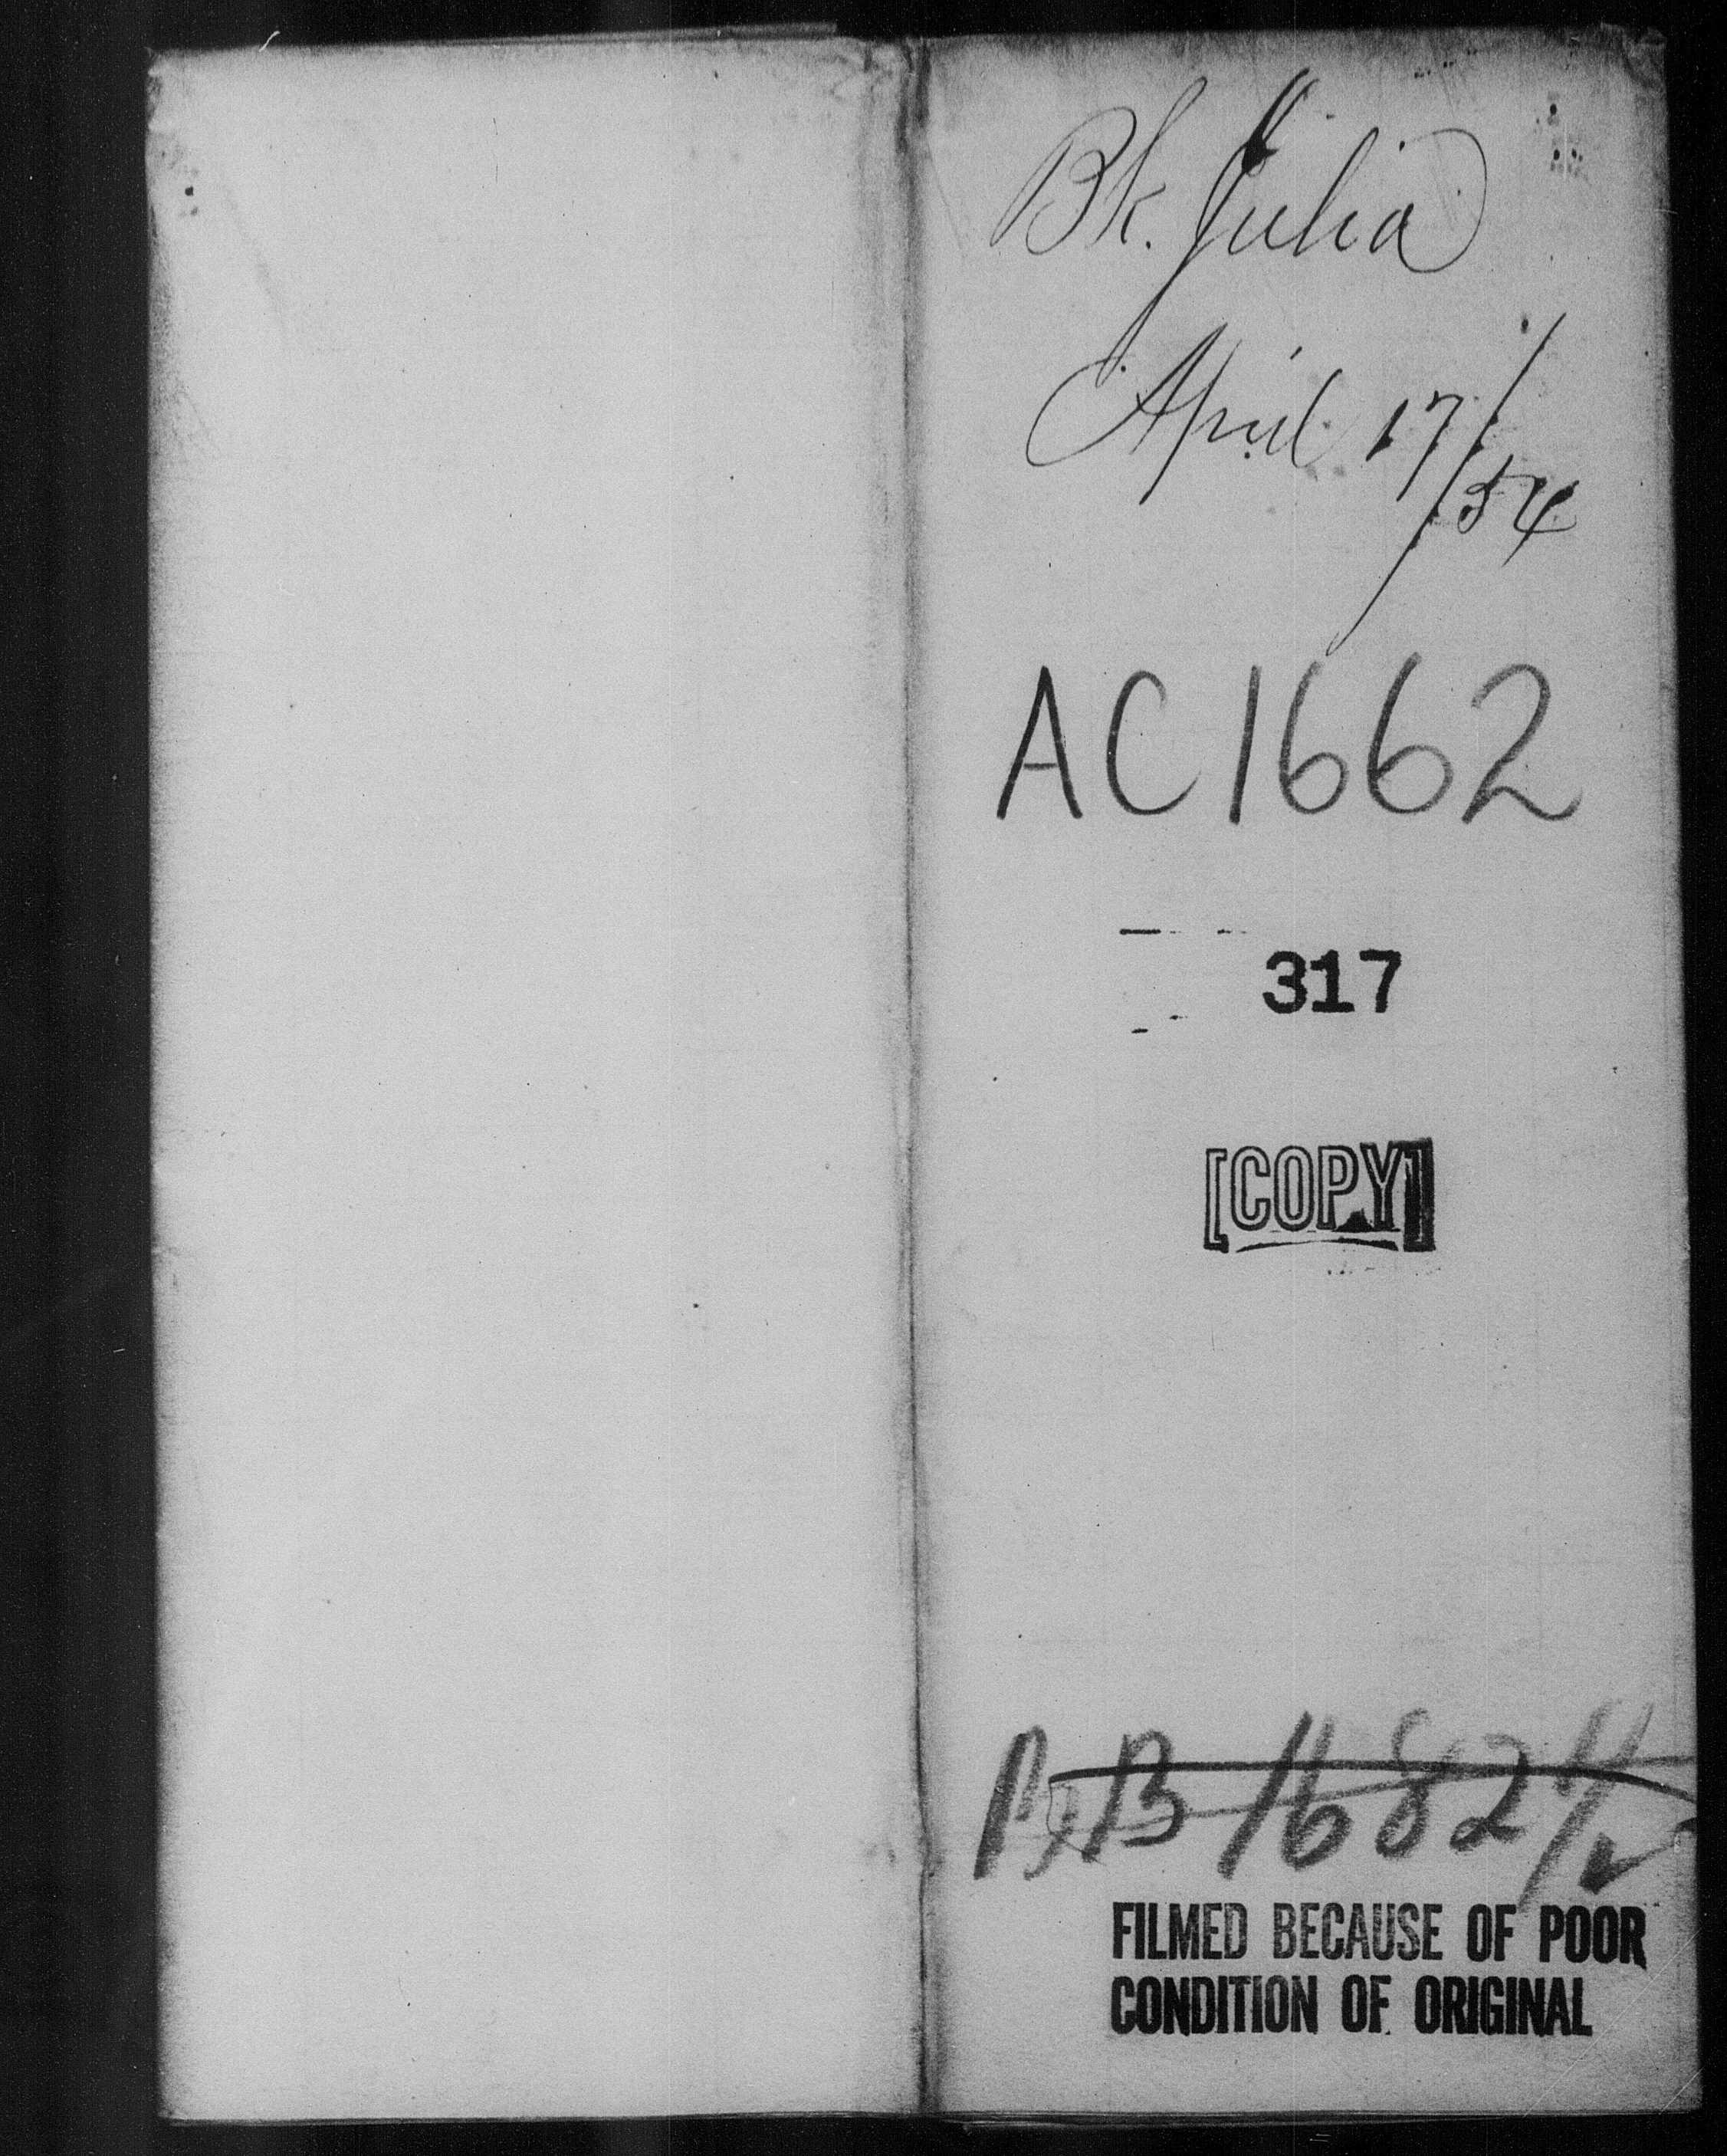 Bk. Julia
April 17/54
AC1662
317
[COPY]
FILMED BECAUSE OF POOR
CONDITION OF ORIGINAL